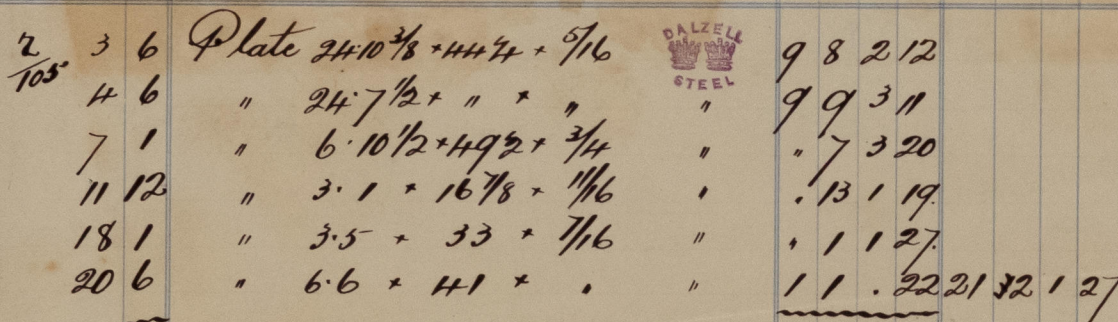 2/105 3 6 Plate 24·10 3/8 + 44 1/2 + 5/16 DALZELL STEEL 9 8 2 12
4 6 " 24·7 1/2 + " + " " 9 9 3 11
7 1 " 6·10 1/2 + 49 1/2 + 3/4 " " 7 3 20
11 12 " 3·1 + 16 7/8 + 11/16 " . 13 1 19
18 1 " 3·5 + 33 + 7/16 " " 1 1 27
20 6 " 6·6 + 41 + " " 1 1 . 22 21 2 1 27